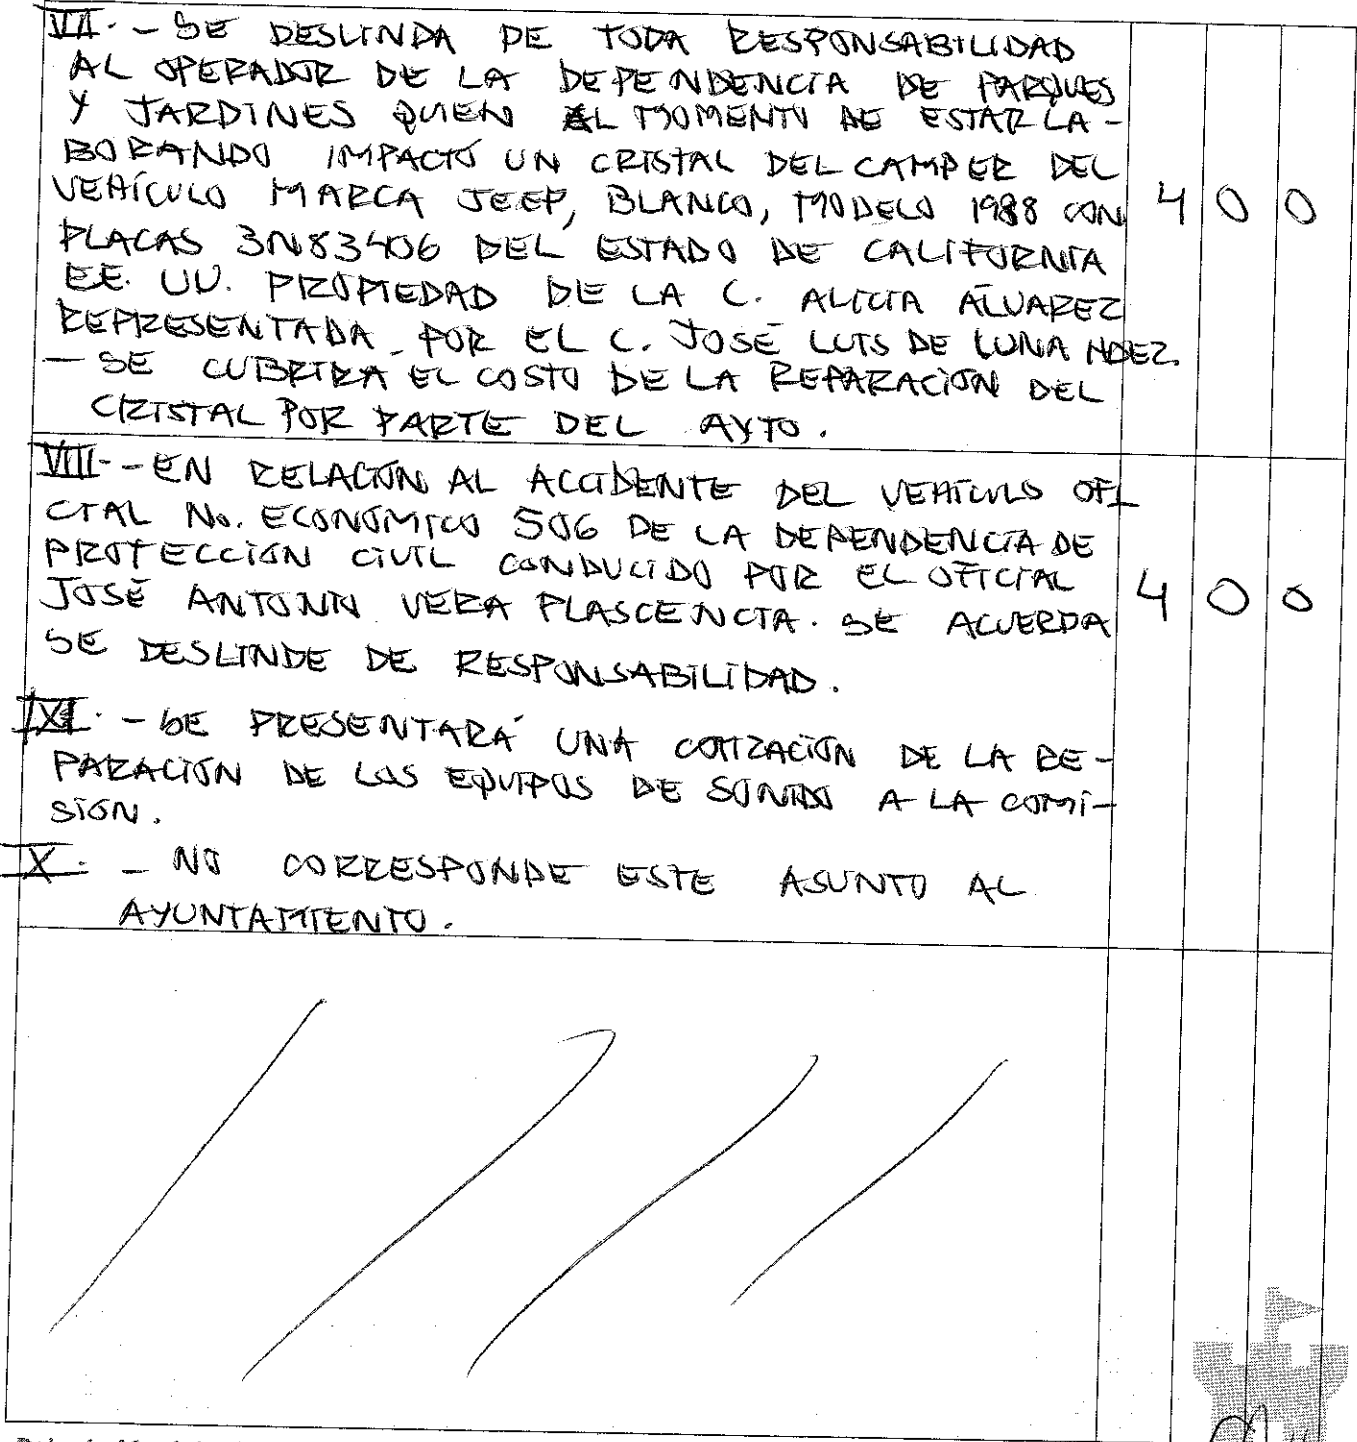 VII. - SE DESLINDA DE TODA RESPONSABILIDAD
AL OPERADOR DE LA DEPENDENCIA DE PARQUES
Y JARDINES QUIEN AL MOMENTO DE ESTAR LA-
BORANDO IMPACTÓ UN CRISTAL DEL CAMPER DEL
VEHÍCULO MARCA JEEP, BLANCO, MODELO 1988 CON
PLACAS 3N83406 DEL ESTADO DE CALIFORNIA
EE. UU. PROPIEDAD DE LA C. ALICIA ALVAREZ
REPRESENTADA POR EL C. JOSÉ LUIS DE LUNA HDEZ.
4 0 0
- SE CUBRIRA EL COSTO DE LA REPARACIÓN DEL
CRISTAL POR PARTE DEL AYTO.
VIII- - EN RELACIÓN AL ACCIDENTE DEL VEHICULO OFI
CIAL No. ECONÓMICO 506 DE LA DEPENDENCIA DE
PROTECCIÓN CIVIL CONDUCIDO POR EL OFICIAL
JOSÉ ANTONIO VERA PLASCENCIA. SE ACUERDA
SE DESLINDE DE RESPONSABILIDAD.
4 0 0
IX. - SE PRESENTARÁ UNA COTIZACIÓN DE LA RE-
PARACIÓN DE LOS EQUIPOS DE SONIDO A LA COMI-
SIÓN.
X. - NO CORRESPONDE ESTE ASUNTO AL
AYUNTAMIENTO.